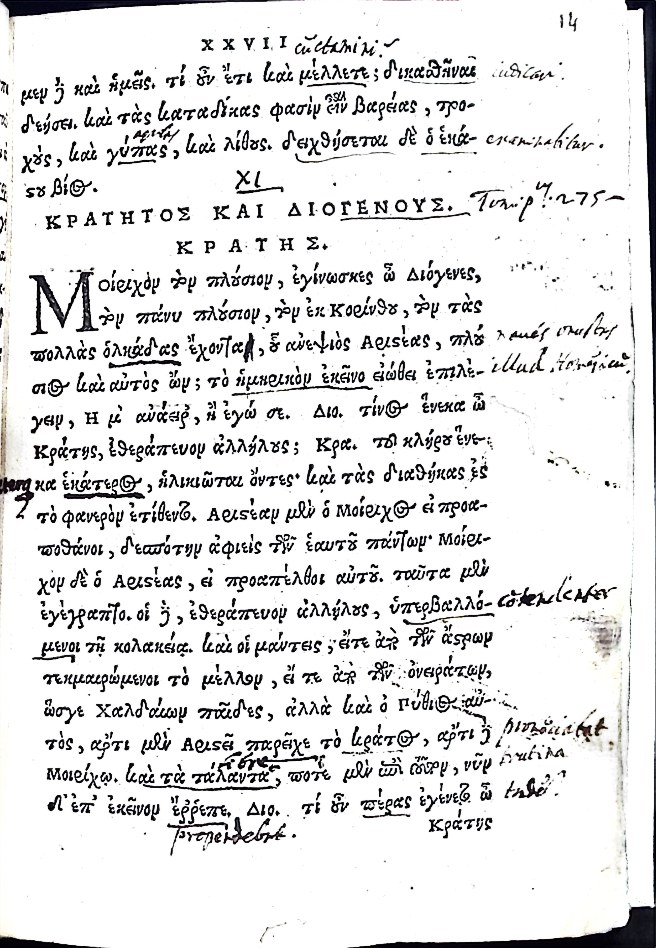 14
XXVII
μεν ἢ καὶ ἡμεῖς. τί οὖν ἔτι καὶ μέλλετε; δικασθῆναι
δεήσει. καὶ τὰς καταδίκας φασὶν εἶναι βαρείας, τρο-
χοὺς, καὶ γύπας, καὶ λίθους. δειχθήσεται δὲ ὁ ἑκά-
στου βίος.
XI
ΚΡΑΤΗΤΟΣ ΚΑΙ ΔΙΟΓΕΝΟΥΣ.
ΚΡΑΤΗΣ.
Μοίριχον τὸν πλούσιον, ἐγίνωσκες ὦ Διόγενες,
τὸν πάνυ πλούσιον, τὸν ἐκ Κορίνθου, τὸν τὰς
πολλὰς ὁλκάδας ἔχοντα, οὗ ἀνεψιὸς Αριστέας, πλού
σιος καὶ αὐτὸς ὤν; τὸ ὁμηρικὸν ἐκεῖνο εἰώθει ἐπιλέ-
γειν, Η μ' ἀνάειρ', ἢ ἐγώ σε. Διο. τίνος ἕνεκα ὦ
Κράτης, ἐθεράπευον ἀλλήλους; Κρα. τοῦ κλήρου ἕνε-
κα ἑκάτερος, ἡλικιῶται ὄντες· καὶ τὰς διαθήκας ἐς
τὸ φανερὸν ἐτίθεντο. Αριστέαν μὲν ὁ Μοίριχος εἰ προα-
ποθάνοι, δεσπότην ἀφιεὶς τῶν ἑαυτοῦ πάντων· Μοίρι-
χον δὲ ὁ Αριστέας, εἰ προαπέλθοι αὐτοῦ. ταῦτα μὲν
ἐγέγραπτο. οἱ δὲ, ἐθεράπευον ἀλλήλους, ὑπερβαλλό-
μενοι τῇ κολακείᾳ. καὶ οἱ μάντεις, εἴτε ἀπὸ τῶν ἄστρων
τεκμαιρόμενοι τὸ μέλλον, εἴ τε ἀπὸ τῶν ὀνειράτων,
ὥσγε Χαλδαίων παῖδες, ἀλλὰ καὶ ὁ Πύθιος αὐ-
τὸς, ἄρτι μὲν Αριστέᾳ παρεῖχε τὸ κράτος, ἄρτι δὲ
Μοιρίχῳ. καὶ τὰ τάλαντα, ποτὲ μὲν ἐπὶ τοῦτον, νῦν
δ' ἐπ' ἐκεῖνον ἔρρεπε. Διο. τί οὖν πέρας ἐγένετο ὦ
Κράτης